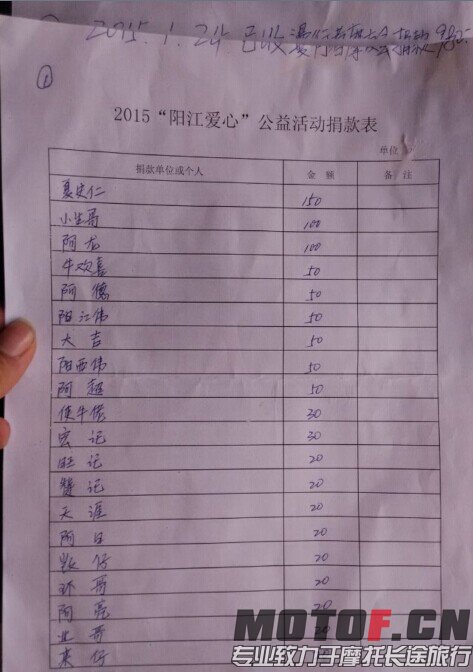 2015.1.24.已收漫行 捐款980元
①
2015“阳江爱心”公益活动捐款表
单位:
捐款单位或个人 金额 备注
夏史仁 150
小生哥 100
阿龙 100
牛欢喜 50
阿德 50
阳江伟 50
大吉 50
阳西伟 50
阿超 50
使牛佬 30
宏记 30
旺记 20
赞记 20
天涯 20
阿日 20
仔 20
环哥 20
阿亮 20
业哥 20
来仔
MOTOF.CN
专业致力于摩托长途旅行